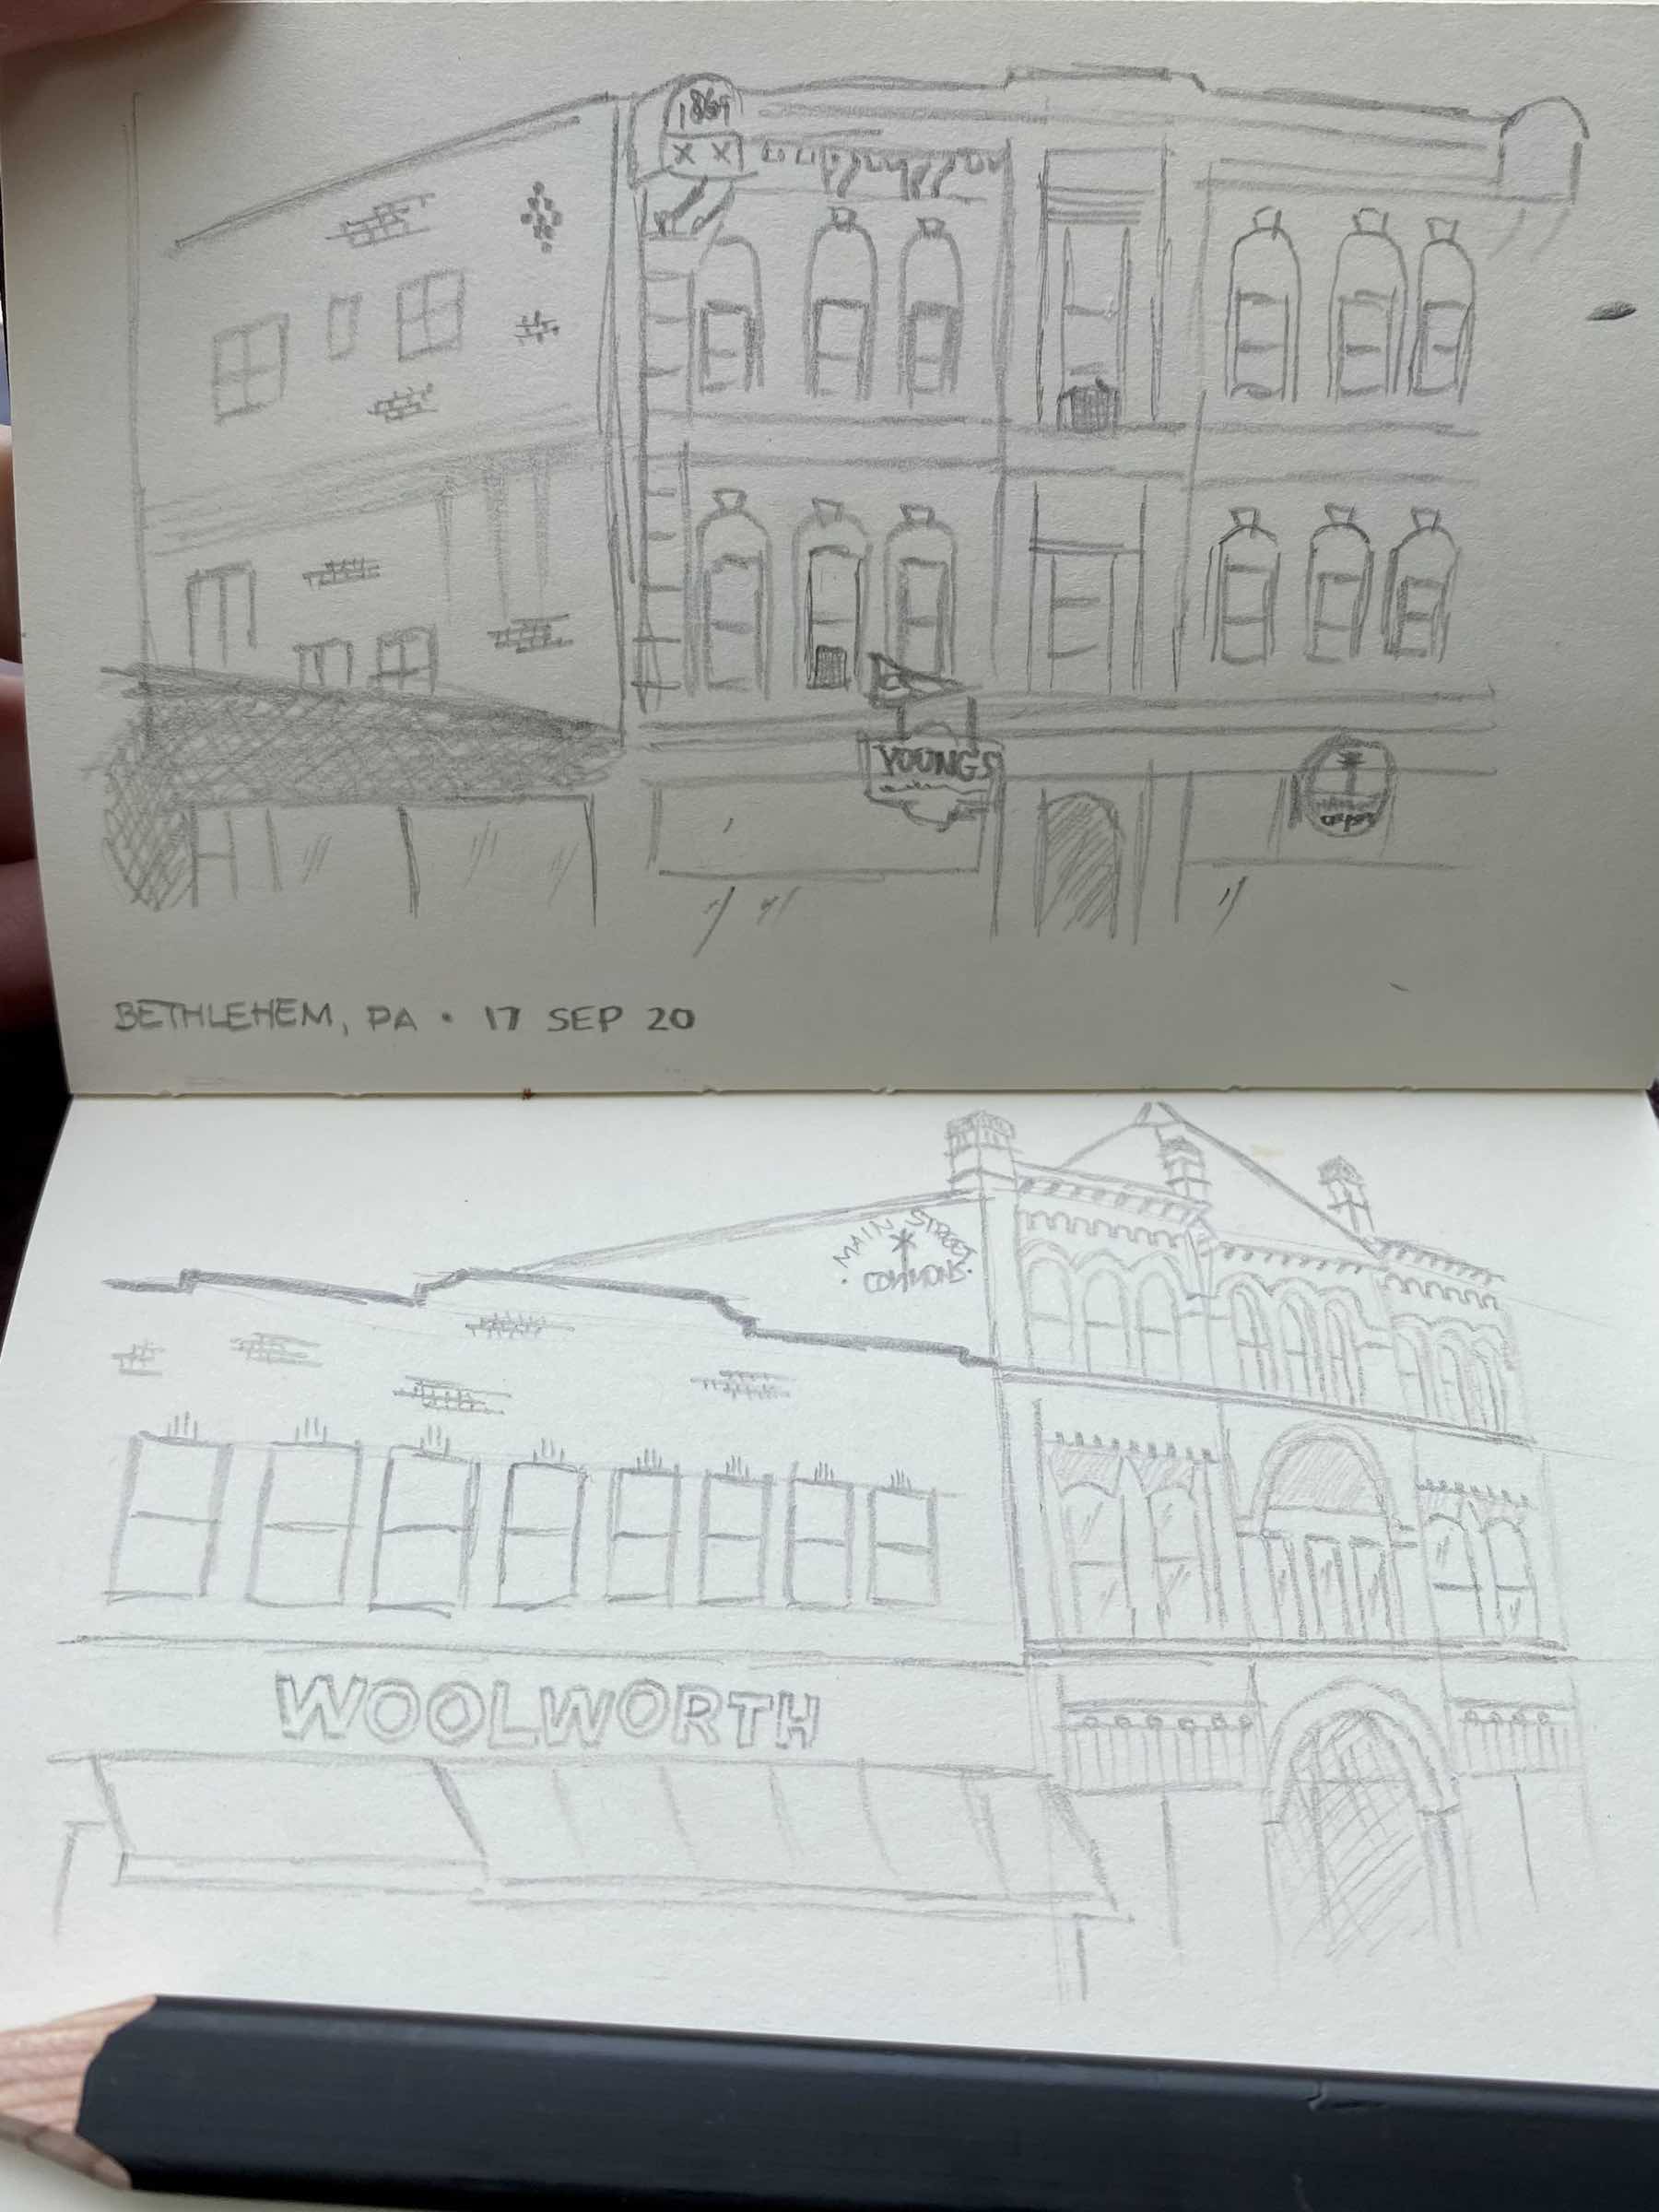 1869
YOUNGS
BETHLEHEM, PA • 17 SEP 20
MAIN STREET
• COMMONS •
WOOLWORTH